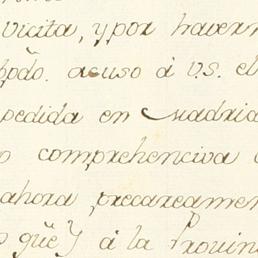 vicita, y por havern
acuso á V.S. el
pedida en Madrid
comprehenciva
ahora precareamen
que á la Provin